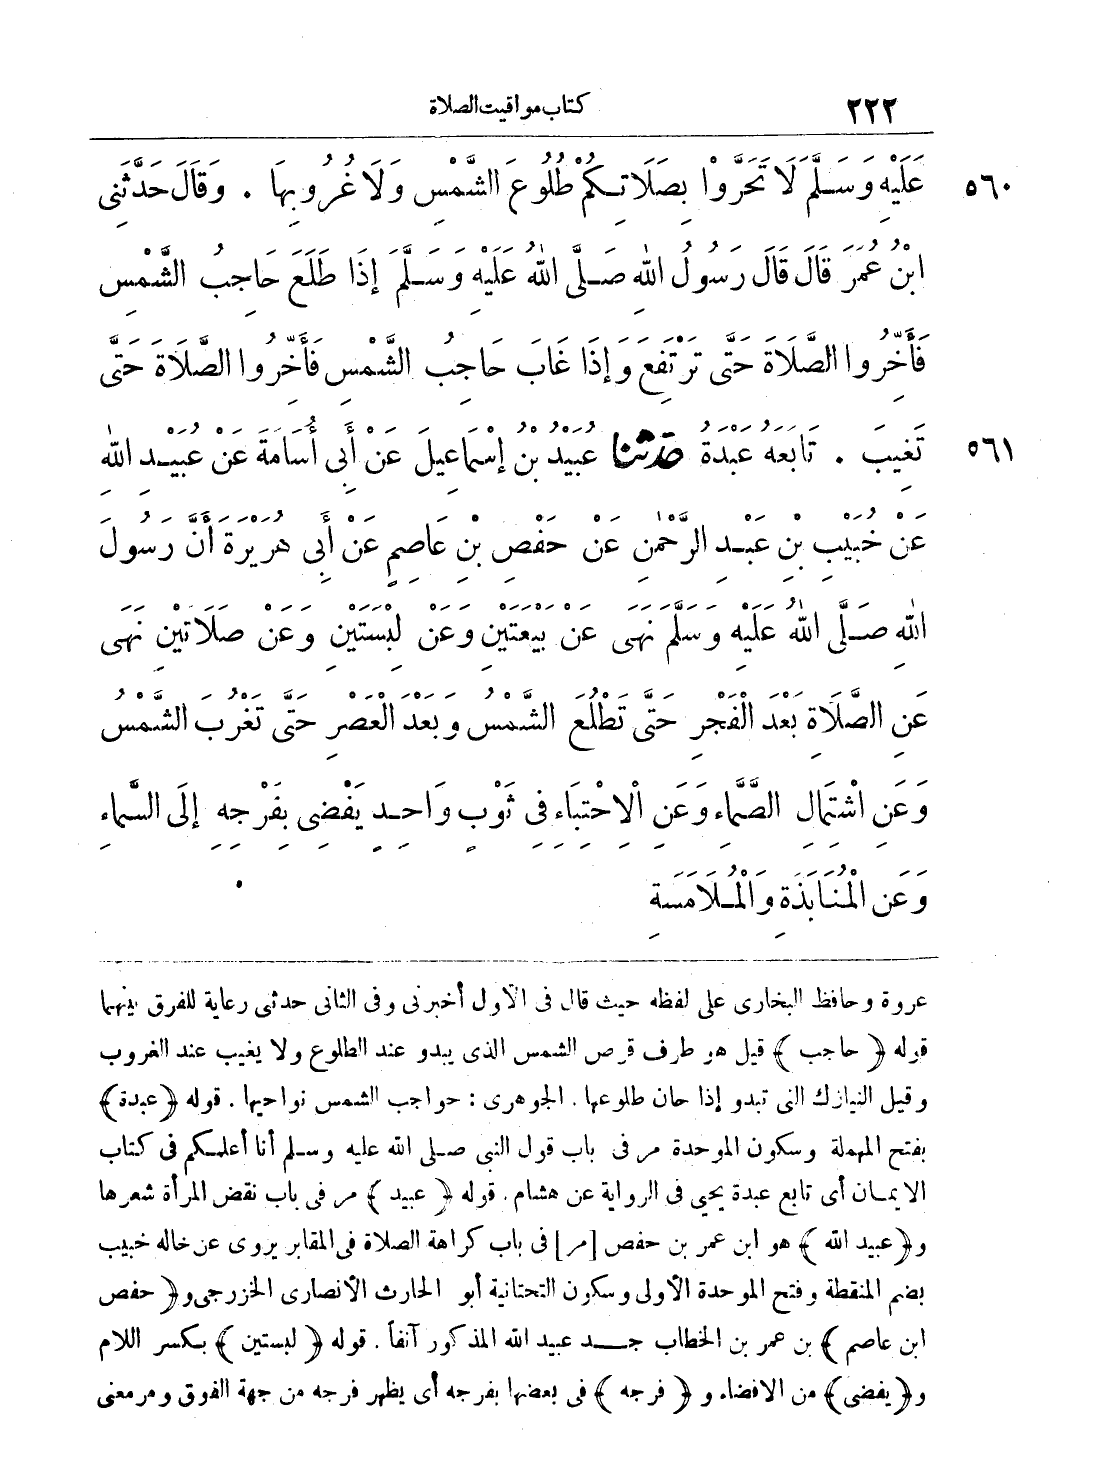 ٢٢٢ كتاب مواقيت الصلاة
٥٦٠ عَلَيْهِ وَسَلَّمَ لَا تَحَرَّوْا بِصَلَاتِكُمْ طُلُوعَ الشَّمْسِ وَلَا غُرُوبَهَا . وَقَالَ حَدَّثَنِى
ابْنُ عُمَرَ قَالَ قَالَ رَسُولُ اللهِ صَلَّى اللهُ عَلَيْهِ وَسَلَّمَ إِذَا طَلَعَ حَاجِبُ الشَّمْسِ
فَأَخِّرُوا الصَّلَاةَ حَتَّى تَرْتَفِعَ وَإِذَا غَابَ حَاجِبُ الشَّمْسِ فَأَخِّرُوا الصَّلَاةَ حَتَّى
٥٦١ تَغِيبَ . تَابَعَهُ عَبْدَةُ حدثنا عُبَيْدُ بْنُ إِسْمَاعِيلَ عَنْ أَبِى أُسَامَةَ عَنْ عُبَيْدِ اللهِ
عَنْ خُبَيْبِ بْنِ عَبْدِ الرَّحْمٰنِ عَنْ حَفْصِ بْنِ عَاصِمٍ عَنْ أَبِى هُرَيْرَةَ أَنَّ رَسُولَ
اللهِ صَلَّى اللهُ عَلَيْهِ وَسَلَّمَ نَهَى عَنْ بَيْعَتَيْنِ وَعَنْ لِبْسَتَيْنِ وَعَنْ صَلَاتَيْنِ نَهَى
عَنِ الصَّلَاةِ بَعْدَ الْفَجْرِ حَتَّى تَطْلُعَ الشَّمْسُ وَبَعْدَ الْعَصْرِ حَتَّى تَغْرُبَ الشَّمْسُ
وَعَنِ اشْتِمَالِ الصَّمَّاءِ وَعَنِ الْاِحْتِبَاءِ فِى ثَوْبٍ وَاحِدٍ يُفْضِى بِفَرْجِهِ إِلَى السَّمَاءِ
وَعَنِ الْمُنَابَذَةِ وَالْمُلَامَسَةِ
عروة وحافظ البخارى على لفظه حيث قال فى الأول أخبرنى وفى الثانى حدثنى رعاية للفرق بينهما
قوله ﴿ حاجب ﴾ قيل هو طرف قرص الشمس الذى يبدو عند الطلوع ولا يغيب عند الغروب
وقيل النيازك التى تبدو إذا حان طلوعها . الجوهرى : حواجب الشمس نواحيها . قوله ﴿عبدة﴾
بفتح المهملة وسكون الموحدة مر فى باب قول النبى صلى الله عليه وسلم أنا أعلمكم فى كتاب
الايمان أى تابع عبدة يحيى فى الرواية عن هشام . قوله ﴿ عبيد ﴾ مر فى باب نقض المرأة شعرها
و﴿عبيد الله ﴾ هو ابن عمر بن حفص [مر] فى باب كراهة الصلاة فى المقابر يروى عن خاله خبيب
بضم المنقطة وفتح الموحدة الأولى وسكون التحتانية أبو الحارث الأنصارى الخزرجى و﴿ حفص
ابن عاصم ﴾ بن عمر بن الخطاب جد عبيد الله المذكور آنفاً . قوله ﴿ لبستين ﴾ بكسر اللام
و﴿يفضى﴾ من الافضاء و ﴿ فرجه ﴾ فى بعضها بفرجه أى يظهر فرجه من جهة الفوق ومر معنى